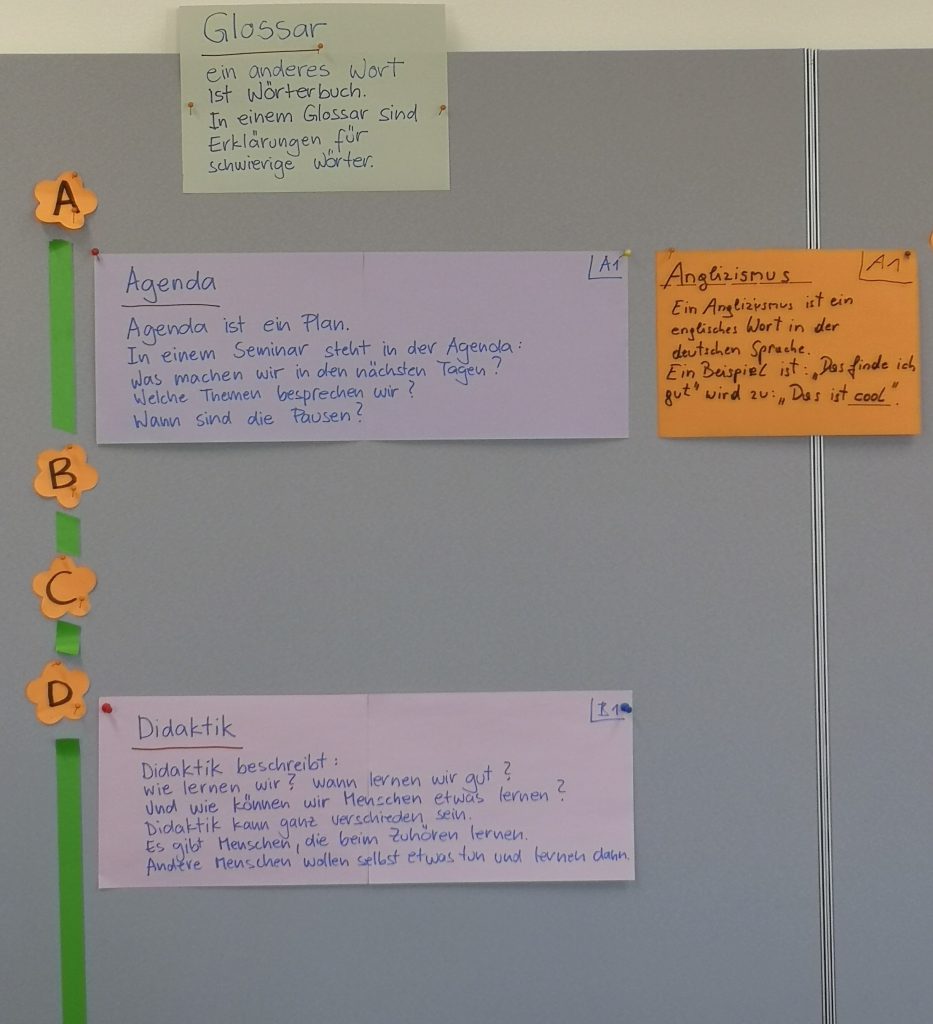 Glossar
ein anderes Wort
ist Wörterbuch.
In einem Glossar sind
Erklärungen für
schwierige Wörter.
A
Agenda
A1
Agenda ist ein Plan.
In einem Seminar steht in der Agenda:
Was machen wir in den nächsten Tagen?
Welche Themen besprechen wir?
Wann sind die Pausen?
Anglizismus
A1
Ein Anglizismus ist ein
englisches Wort in der
deutschen Sprache.
Ein Beispiel ist: „Das finde ich
gut" wird zu: „Das ist cool".
B
C
D
Didaktik
Didaktik beschreibt:
wie lernen wir? wann lernen wir gut?
Und wie können wir Menschen etwas lernen?
Didaktik kann ganz verschieden sein.
Es gibt Menschen, die beim Zuhören lernen.
Andere Menschen wollen selbst etwas tun und lernen dann.